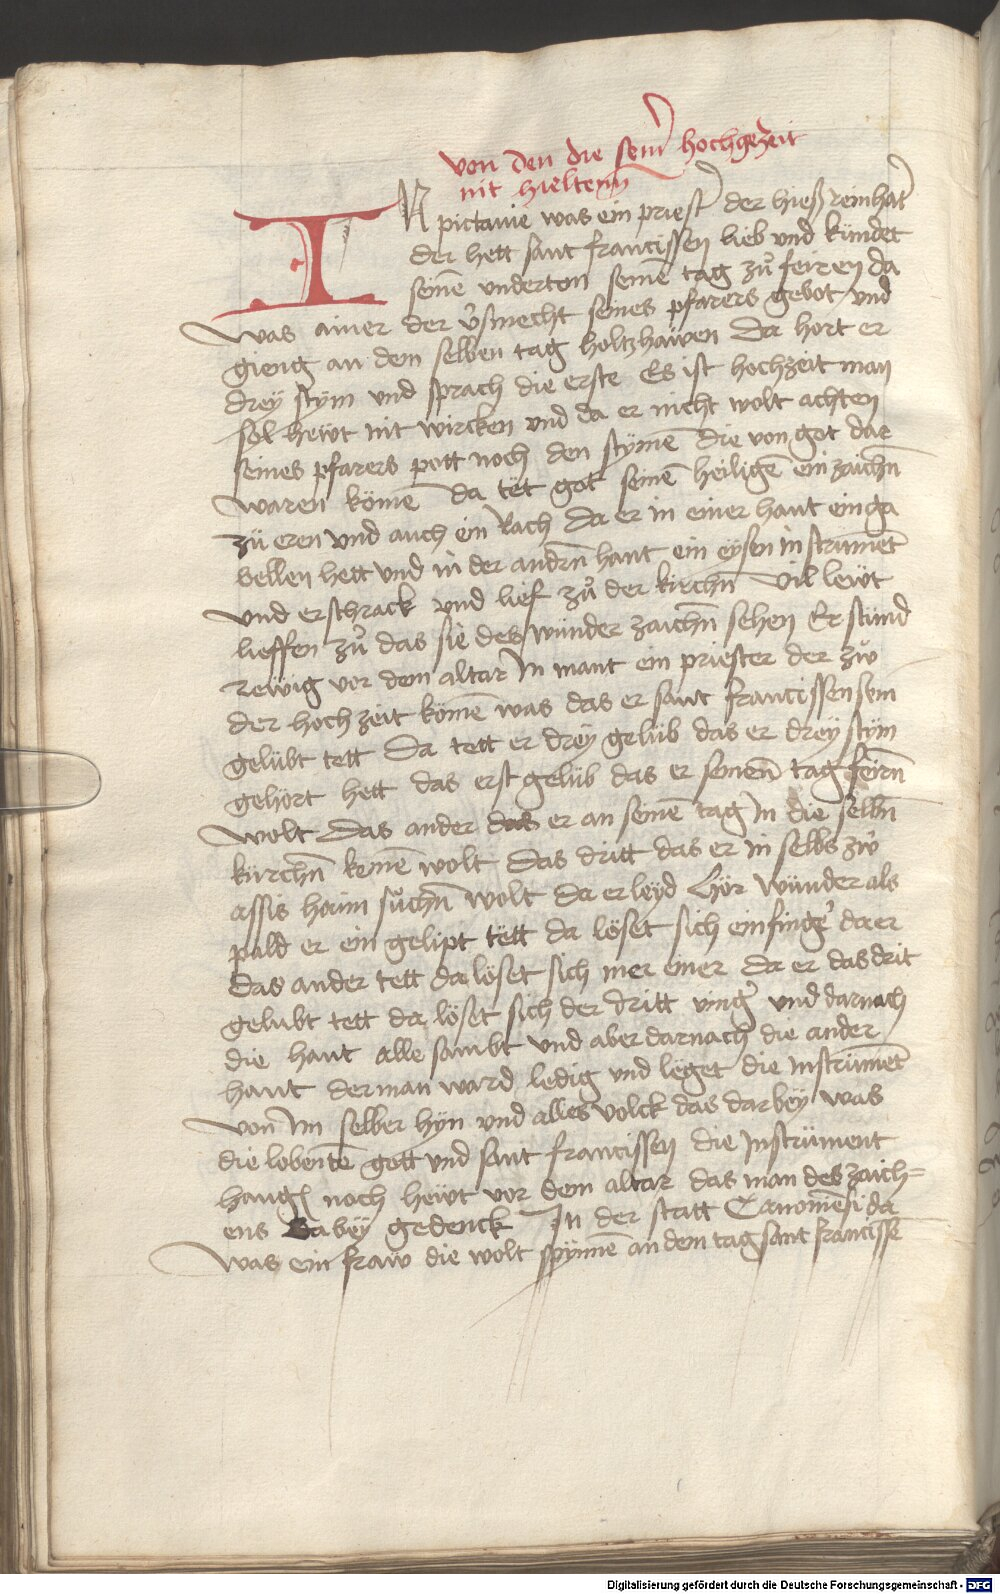 von den die sein̄ hochgezeit
nit hielten
IN pictauie was ein priest̄ der hieß reinhar̄t
der hett sant francissen lieb vnd kündet
seinē vnderton seinē tag zů feiren da
was ainer der v̓smecht seines pfarers gebot vnd
gieng an dem selben tag holtzhaẅen Da hort er
drey stym vnd sprach die erste Es ist hochzeit man
sol heẅt nit wircken vnd da er nicht wolt achten
seines pfarers pott noch den stymē die von got dar
waren kömē da tët got seinē heiligē ein zaichn̄
zü eren vnd auch ein Rach Da er in einer hant ein ga
bellen hett vnd in der andrn̄ hant ein eysen instrumēt
vnd erschrack vnd lief zů der kirchn̄ vil leẅt
lieffen zů das sie des wunder zaichn̄ sehen Er stund
reẅig vor dem altar In mant ein priester der zů
der hochzeit kömē was das er sant francissen sein
gelübt tett Da tett er drey gelüb das er drey stym
gehört hett das erst gelüb das er seinem tag feirn̄
wolt Das ander das er an seinē tag In die selbn̄
kirchn̄ kemē wolt Das dritt das er in selbs zů
assis haim sůchn̄ wolt da er leyd Hör wunder als
pald er ein gelipt tëtt da löset sich ein finger̓ da er
das ander tett da löset sich mer einer Da er das drit
gelubt tett da löset sich der dritt ving̓ vnd darnach
die hant alle sambt vnd aber darnach die ander
hant der man ward ledig vnd leget die Instrumēt
von Im selber hyn vnd alles volck das darbey was
die lobentē gott vnd sant francissen die Instrüment
hangē noch heẅt vor dem altar das man des zaich=
ens Dabey gedenck In der statt Canomēsi da
was ein fraw die wolt spynnē an dem tag sant francisse
Digitalisierung gefördert durch die Deutsche Forschungsgemeinschaft - DFG